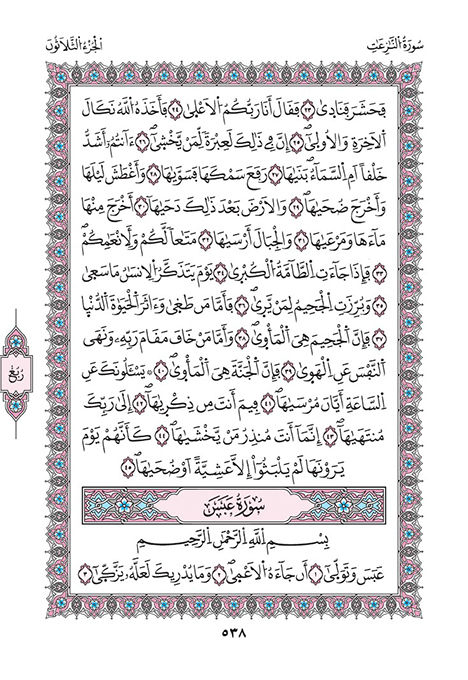 سُورَةُ النَّازِعَاتِ
الْجُزْءُ الثَّلَاثُونَ
فَحَشَرَ فَنَادَىٰ ٢٣ فَقَالَ أَنَا رَبُّكُمُ الْأَعْلَىٰ ٢٤ فَأَخَذَهُ اللَّهُ نَكَالَ
الْآخِرَةِ وَالْأُولَىٰ ٢٥ إِنَّ فِي ذَٰلِكَ لَعِبْرَةً لِمَنْ يَخْشَىٰ ٢٦ ءَأَنْتُمْ أَشَدُّ
خَلْقًا أَمِ السَّمَاءُ بَنَيٰهَا ٢٧ رَفَعَ سَمْكَهَا فَسَوَّيٰهَا ٢٨ وَأَغْطَشَ لَيْلَهَا
وَأَخْرَجَ ضُحَيٰهَا ٢٩ وَالْأَرْضَ بَعْدَ ذَٰلِكَ دَحَيٰهَا ٣٠ أَخْرَجَ مِنْهَا
مَاءَهَا وَمَرْعَيٰهَا ٣١ وَالْجِبَالَ أَرْسَيٰهَا ٣٢ مَتَٰعًا لَكُمْ وَلِأَنْعَٰمِكُمْ
٣٣ فَإِذَا جَاءَتِ الطَّامَّةُ الْكُبْرَىٰ ٣٤ يَوْمَ يَتَذَكَّرُ الْإِنْسَٰنُ مَا سَعَىٰ
٣٥ وَبُرِّزَتِ الْجَحِيمُ لِمَنْ يَرَىٰ ٣٦ فَأَمَّا مَنْ طَغَىٰ وَءَاثَرَ الْحَيَوٰةَ الدُّنْيَا
٣٧ فَإِنَّ الْجَحِيمَ هِيَ الْمَأْوَىٰ ٣٨ وَأَمَّا مَنْ خَافَ مَقَامَ رَبِّهِ وَنَهَى
النَّفْسَ عَنِ الْهَوَىٰ ٣٩ فَإِنَّ الْجَنَّةَ هِيَ الْمَأْوَىٰ ٤٠ يَسْـَٔلُونَكَ عَنِ
السَّاعَةِ أَيَّانَ مُرْسَيٰهَا ٤١ فِيمَ أَنْتَ مِنْ ذِكْرَيٰهَا ٤٢ إِلَىٰ رَبِّكَ
مُنْتَهَيٰهَا ٤٣ إِنَّمَا أَنْتَ مُنْذِرُ مَنْ يَخْشَيٰهَا ٤٤ كَأَنَّهُمْ يَوْمَ
يَرَوْنَهَا لَمْ يَلْبَثُوا إِلَّا عَشِيَّةً أَوْ ضُحَيٰهَا ٤٥
سُورَةُ عَبَسَ
بِسْمِ اللَّهِ الرَّحْمَٰنِ الرَّحِيمِ
عَبَسَ وَتَوَلَّىٰ ١ أَنْ جَاءَهُ الْأَعْمَىٰ ٢ وَمَا يُدْرِيكَ لَعَلَّهُ يَزَّكَّىٰ ٣
رُبُعْ
٥٣٨